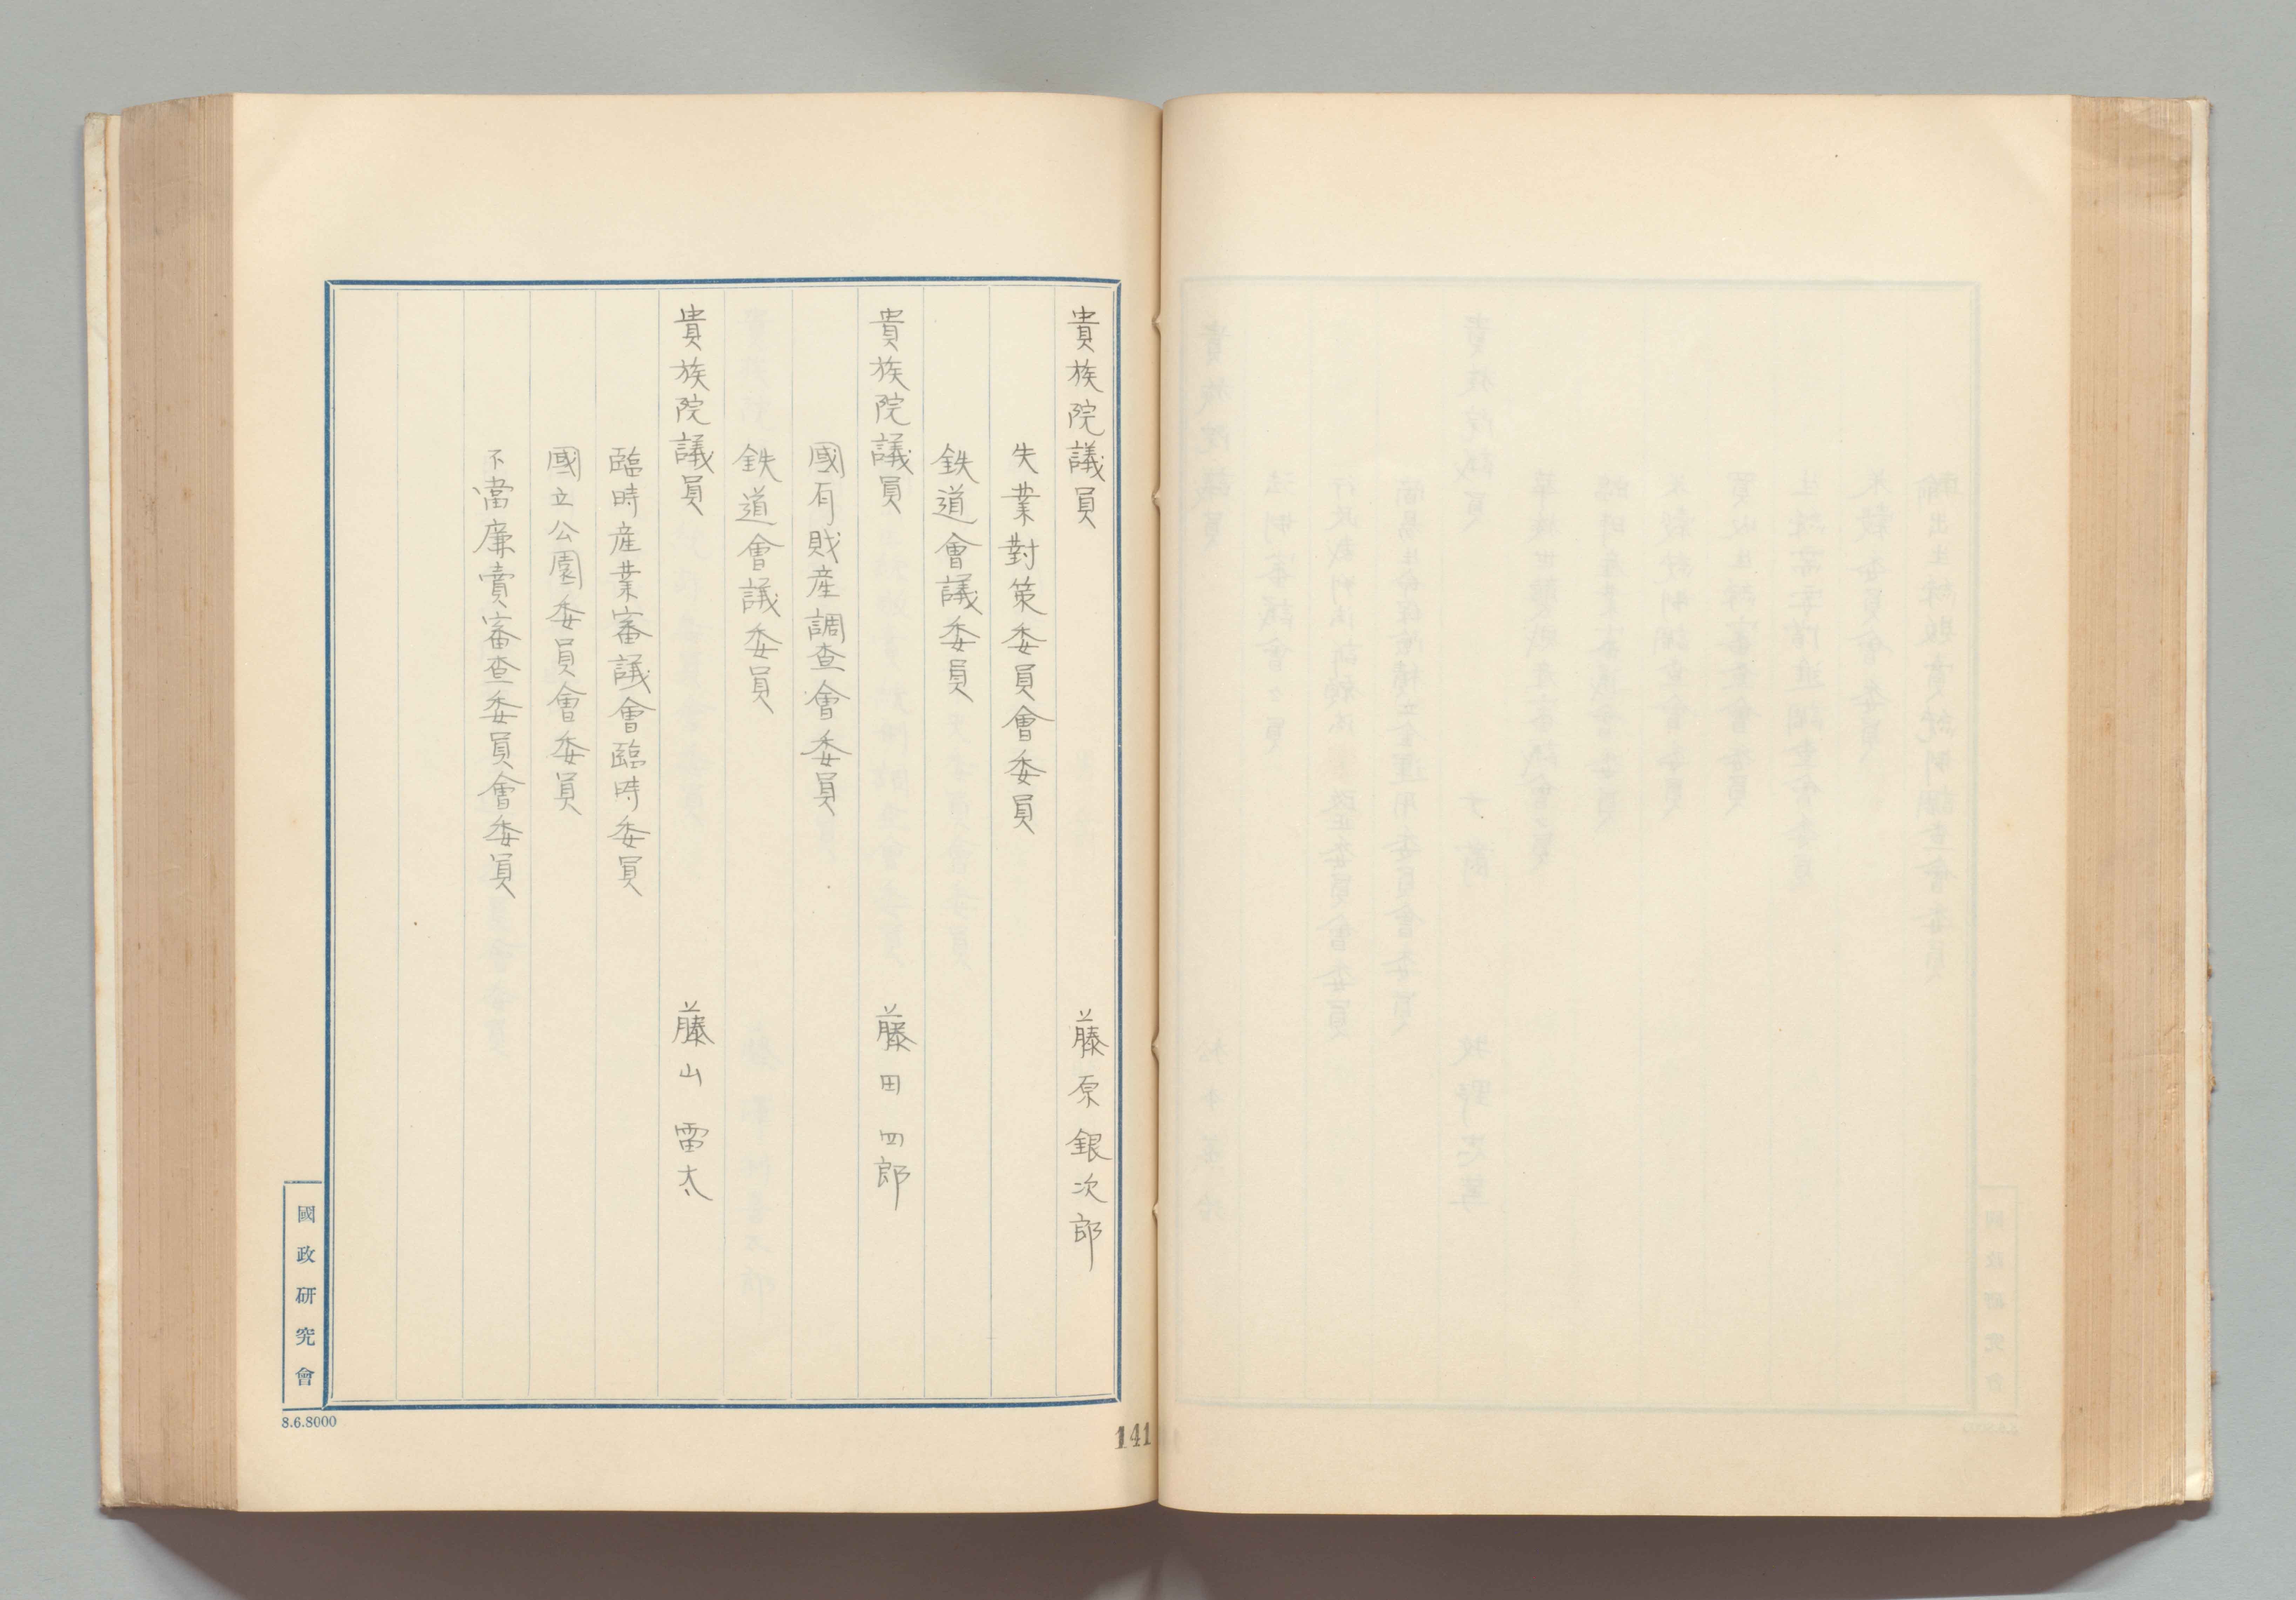 貴族院議員 藤原銀次郎
失業對策委員會委員
鉄道會議委員
貴族院議員 藤田四郎
國有財産調查會委員
鉄道會議委員
貴族院議員 藤山雷太
臨時産業審議會臨時委員
國立公園委員會委員
不當廉賣審查委員會委員
國政研究會
8.6.8000
141